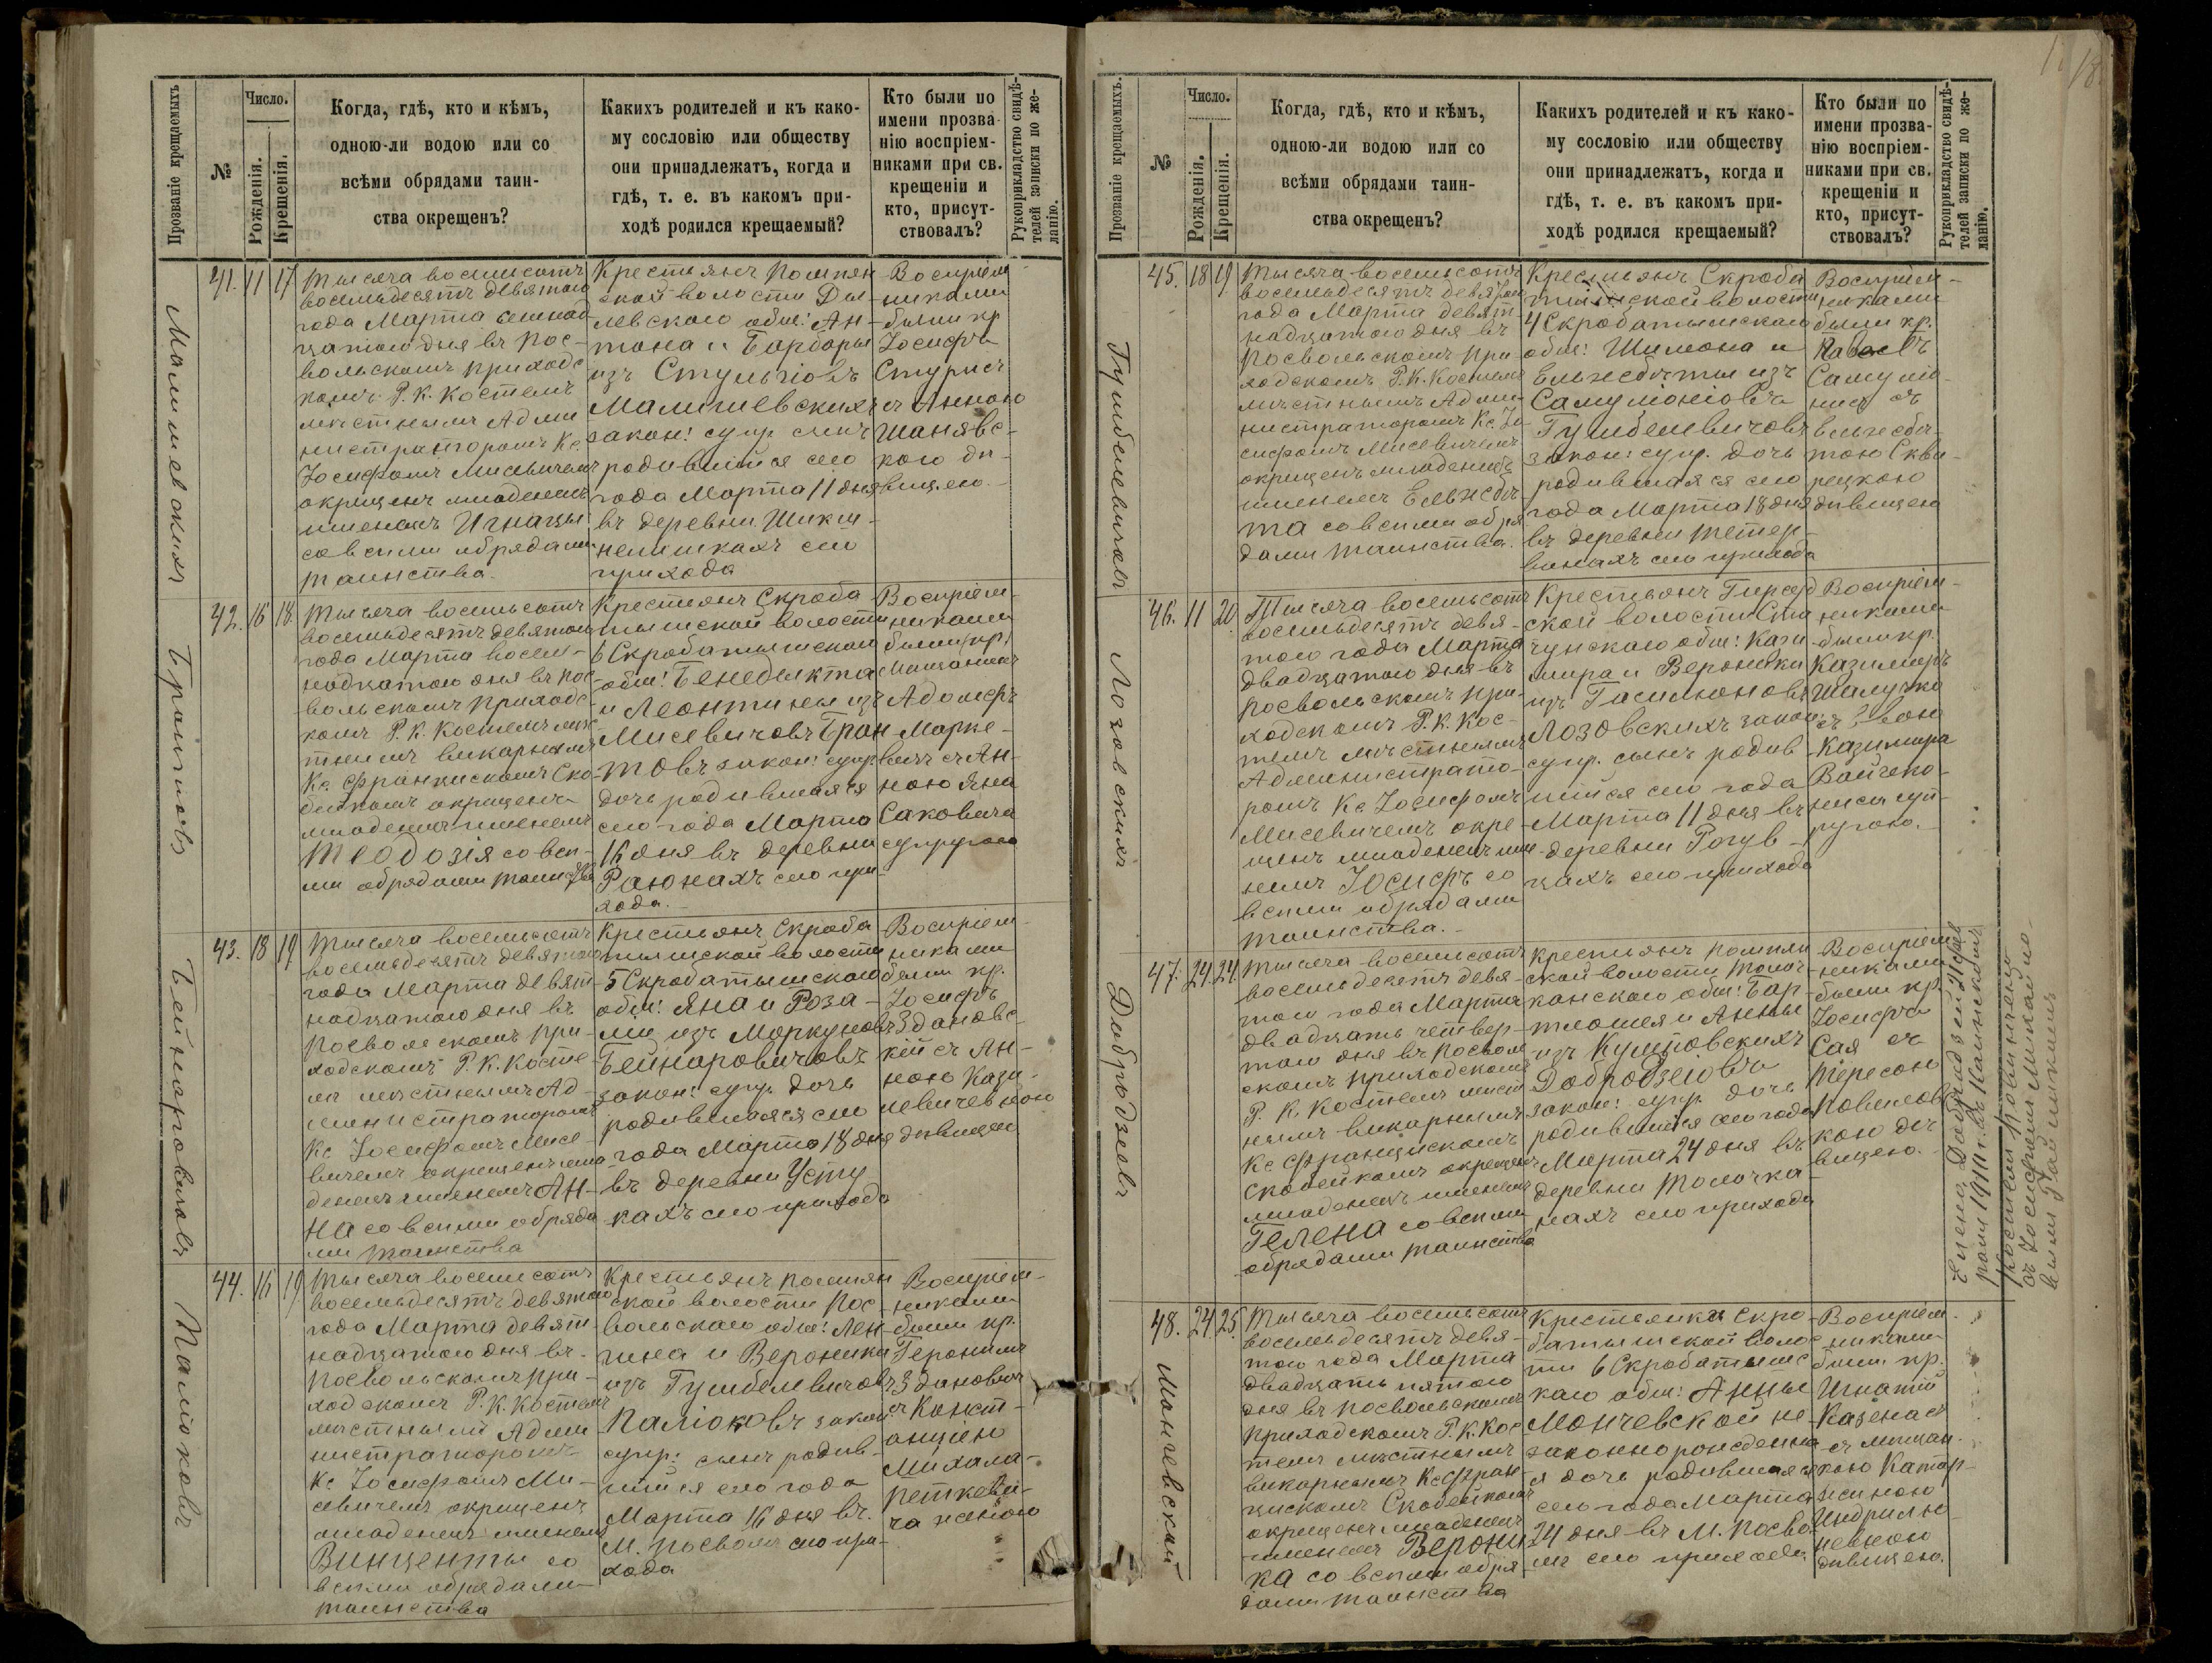 Прозваніе крещаемыхъ
№
Число.
Рожденія.
Крещенія.
Когда, гдѣ, кто и кѣмъ,
одною-ли водою или со
всѣми обрядами таин-
ства окрещенъ?
Каихъ родителей и къ како-
му сословію или обществу
они принадлежатъ, когда и
гдѣ, т. е. въ какомъ при-
ходѣ родился крещаемый?
Кто были по
имени прозва-
нію воспріем-
никами при св.
крещеніи и
кто, присут-
ствовалъ?
Рукоприкладство свидѣ-
телей записки по же-
ланію.
Малишевскихъ
41. 11 17
Тысяча восемьсотъ
восемьдесятъ девятого
года Марта семнад-
цатого дня въ Пос-
вольскомъ приходс
комъ Р. К. Костелѣ
мѣстнымъ Адми
нистраторомъ Кс.
Іосифомъ Мисевичемъ
окрещенъ младенецъ
именемъ Игнацы
со всѣми обрядами
таинства.
Крестьянъ Помпян
ской волости
левского общ: Ан-
тона и Барбары
изъ
Малишевскихъ
закон: супр. сынъ
родившійся сего
года Марта 11 дня
въ деревни
сего
прихода
Воспріем-
никами
были кр.
Іосифъ
съ Анною
Шанявс-
кою дѣ-
вицею.
Брантовъ
42. 16 18.
Тысяча восемьсотъ
восемьдесятъ девятого
года Марта восем-
надцатого дня въ Пос
вольскомъ приходс-
комъ Р. К. Костелѣ мѣс
тнымъ викарнымъ
Кс. Францискомъ Ско-
бейкомъ окрещенъ
младенецъ именемъ
Теодозія со всѣ-
ми обрядами таинства
Крестьянъ Скроба
тышской волости
6 Скробатышского
общ: Бенедыкта
и Леонтины изъ
Мисевичовъ Бран
товъ закон: супр
дочь родившаяся
сего года Марта
16 дня въ деревни
Раюнахъ сего при-
хода.
Воспріем-
никами
были кр.
Мищанинъ
Адольфъ
Марке-
вичъ съ Ан-
ною Яна
Саковича
супругою
Бейнаровичовъ
43. 18 19
Тысяча восемьсотъ
восемьдесятъ девятого
года Марта девят-
надцатого дня въ
Посвольскомъ при-
ходскомъ Р. К. Косте-
лѣ мѣстнымъ Ад-
министраторомъ
Кс Іосифомъ Мисе-
вичемъ окрещенъ мла
денецъ именемъ Ан-
на со всѣми обряда
ми таинства
Крестьянъ Скроба
тышской волости
5 Скробатышского
общ: Яна и Роза-
ліи изъ Моркуновъ
Бейнаровичовъ
закон: супр. дочь
родившаяся сего
года Марта 18 дня
въ деревни Усту
кахъ сего прихода
Воспріем-
никами
были кр.
Іосифъ
Здановс-
кій съ Ан-
ною Кази-
левичевною
дѣвицею
Палюковъ
44. 16 19
Тысяча восемьсотъ
восемьдесятъ девятого
года Марта девят-
надцатого дня въ
Посвольскомъ при-
ходскомъ Р. К. Костелѣ
мѣстнымъ Адми
нистраторомъ
Кс Іосифомъ Ми-
севичемъ окрещенъ
младенецъ именемъ
Винценты со
всѣми обрядами
таинства
Крестьянъ Помпян
ской волости Пос-
вольского общ: Лен-
гина и Вероники
изъ Гумбелевичовъ
Палюковъ закон:
супр: сынъ родив-
шійся сего года
Марта 16 дня въ
М. Посволѣ сего при-
хода
Воспріем-
никами
были кр.
Геронимъ
Здановичъ
съ Конст-
анціею
Михала
Петкеви-
ча женою
18
Прозваніе крещаемыхъ.
№
Число.
Рожденія.
Крещенія.
Когда, гдѣ, кто и кѣмъ,
одною-ли водою или со
всѣми обрядами таин-
ства окрещенъ?
Какихъ родителей и къ како-
му сословію или обществу
они принадлежатъ, когда и
гдѣ, т. е. въ какомъ при-
ходѣ родился крещаемый?
Кто были по
имени прозва-
нію воспріем-
никами при св.
крещеніи и
кто, присут-
ствовалъ?
Рукоприкладство свидѣ-
телей записки по же-
ланію.
Гумбелевичовъ
45. 18 19
Тысяча восемьсотъ
восемьдесятъ девятого
года Марта девят-
надцатого дня въ
Посвольскомъ при
ходскомъ Р. К. Костелѣ
мѣстнымъ Адми-
нистраторомъ Кс. Іо
сифомъ Мисевичемъ
окрещенъ младенецъ
именемъ Ельжбѣ
та со всѣми обря
дами таинства.
Крестьянъ Скроба
тышской волости
4 Скробатышского
общ: Шимона и
Ельжбѣты изъ
Самуліоніовъ
Гумбелевичовъ
закон: супр. дочь
родившаяся сего
года Марта 18 дня
въ деревни Тетер-
винахъ сего прихода
Воспріем-
никами
были кр.
Павелъ
Самуліо-
нисъ съ
Ельжбѣ-
тою Скви-
рецкою
дѣвицею
Лозовскихъ
46. 11 20
Тысяча восемьсотъ
восемьдесятъ девя-
того года Марта
двадцатого дня въ
Посвольскомъ при-
ходскомъ Р. К. Кос-
телѣ мѣстнымъ
Администрато-
ромъ Кс Іосифомъ
Мисевичемъ окре-
щенъ младенецъ име
немъ Іосифъ со
всѣми обрядами
таинства.
Крестьянъ Гирсуд
ской волости Ста
чунского общ: Кази-
мира и Вероники
изъ Гасилюновъ
Лозовскихъ закон:
супр. сынъ родив-
шійся сего года
Марта 11 дня въ
деревни Рогув-
цахъ сего прихода
Воспріем-
никами
были кр.
Казимиръ
Шалучко
съ Евою
Казимира
Войчко-
ниса суп-
ругою.
Добродзеовъ
47. 24. 24.
Тысяча восемьсотъ
восемьдесятъ девя-
того года Марта
двадцать четвер-
того дня въ Посволь
скомъ приходскомъ
Р. К. Костелѣ мѣст
нымъ викарнымъ
Кс Францискомъ
Скобейкомъ окрещенъ
младенецъ именемъ
Гелена со всѣми
обрядами таинства
Крестьянъ Помпян
ской волости Толоч-
канского общ: Бар-
тломея и Анны
изъ Кулповскихъ
Добродзеіовъ
закон: супр. дочь
родившійся сего года
Марта 24 дня въ
деревни Толочка-
нахъ сего прихода
Воспріем-
никами
были кр.
Іосифъ
Сая съ
Тересою
Повилов-
кою дѣ-
вицею.
Елена Добродзей 21 фев
раля 1911 г. въ
костелѣ повѣнчена
съ Іосифомъ Михайло-
вымъ
Мончевской
48. 24 25
Тысяча восемьсотъ
восемьдесятъ девя-
того года Марта
двадцать пятого
дня въ Посвольскомъ
приходскомъ Р. К. Кос
телѣ мѣстнымъ
викарнымъ Кс Фран
цискомъ Скобейкомъ
окрещенъ младенецъ
именемъ Верони
ка со всѣми обря
дами таинства
Крестьянки Скро-
батышской волос
ти 6 Скробатышс
каго общ: Анны
Мончевской не-
законнорожденна
я дочь родившаяся
сего года Марта
24 дня въ М. Посво-
лѣ сего прихода
Воспріем-
никами
были кр.
Игнатій
Казенасъ
съ Мищан-
кою Катар-
жиною
Индрилю-
невною
дѣвицею.